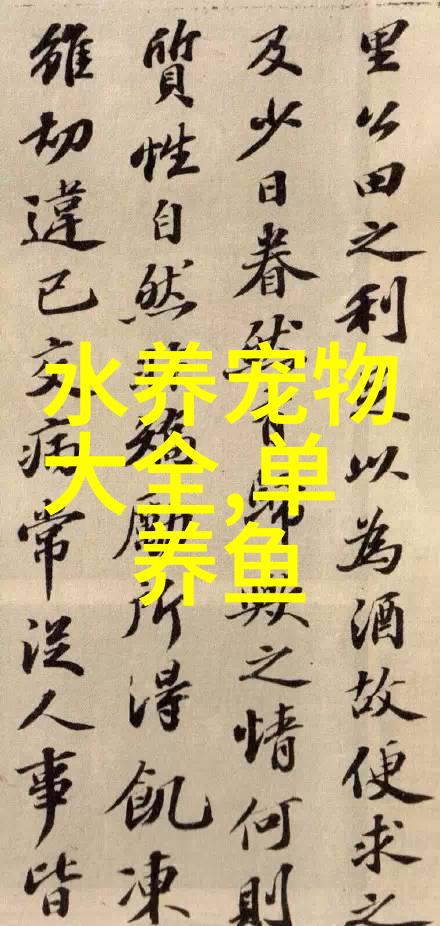 水养宠物
大全,单
养鱼
里公田之利足以為酒故便求之
及少日眷然有歸歟之情何則
質性自然非矯勵所得飢凍
雖切違已交病常從人事皆